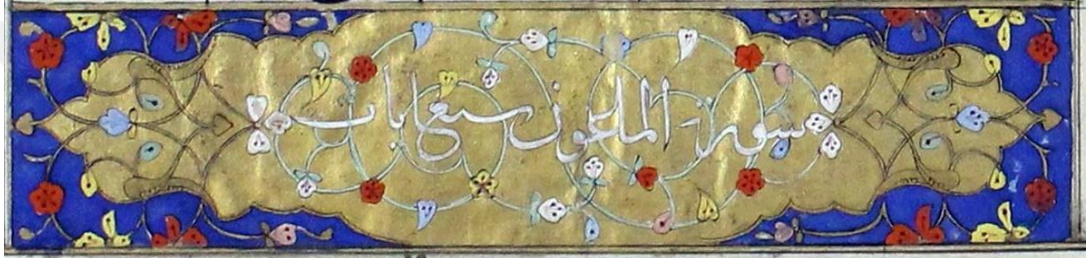 سورة الماعون سبع اٰیات